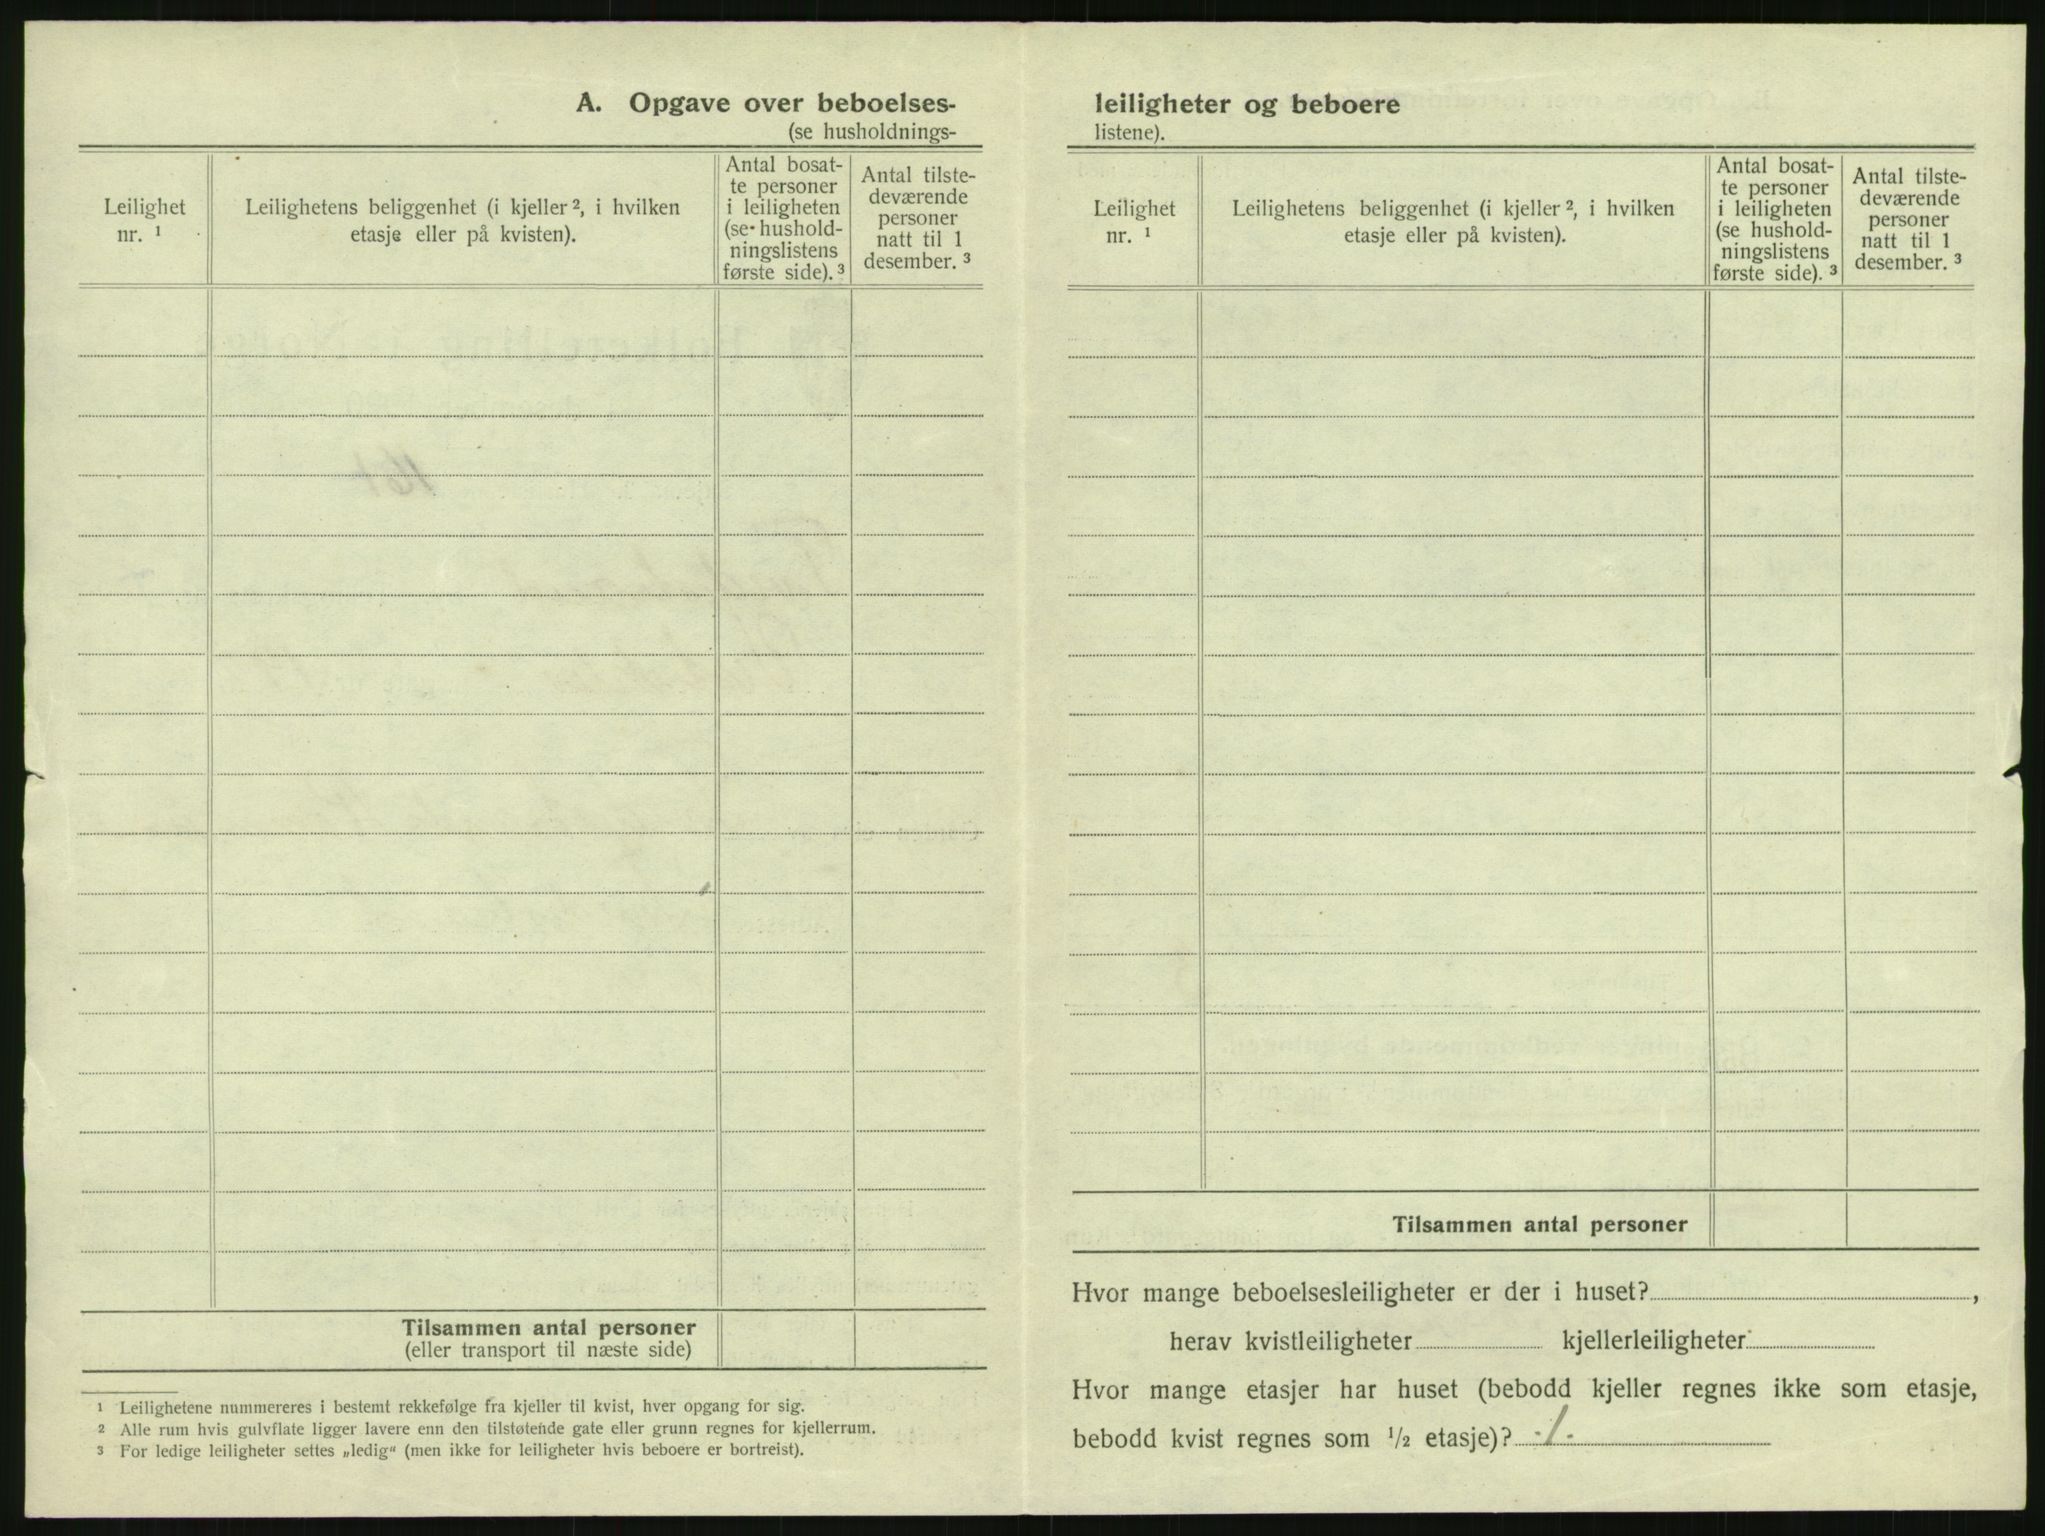 A. Opgave over beboelses-
(se husholdnings-
Leilighet
nr. ¹
Leilighetens beliggenhet (i kjeller ², i hvilken
etasje eller på kvisten).
Antal bosat-
te personer
i leiligheten
(se hushold-
ningslistens
første side). ³
Antal tilste-
deværende
personer
natt til 1
desember. ³
Tilsammen antal personer
(eller transport til næste side)
¹ Leilighetene nummereres i bestemt rekkefølge fra kjeller til kvist, hver opgang for sig.
² Alle rum hvis gulvflate ligger lavere enn den tilstøtende gate eller grunn regnes for kjellerrum.
³ For ledige leiligheter settes „ledig“ (men ikke for leiligheter hvis beboere er bortreist).
leiligheter og beboere
listene).
Leilighet
nr. ¹
Leilighetens beliggenhet (i kjeller ², i hvilken
etasje eller på kvisten).
Antal bosat-
te personer
i leiligheten
(se hushold-
ningslistens
første side). ³
Antal tilste-
deværende
personer
natt til 1
desember. ³
Tilsammen antal personer
Hvor mange beboelsesleiligheter er der i huset? ,
herav kvistleiligheter kjellerleiligheter
Hvor mange etasjer har huset (bebodd kjeller regnes ikke som etasje,
bebodd kvist regnes som ½ etasje)? ·/·